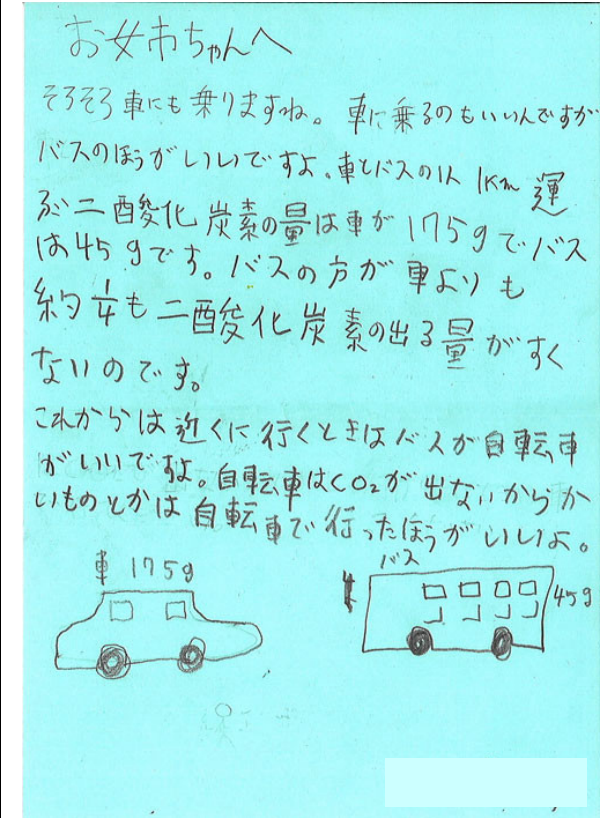 お姉ちゃんへ
そろそろ車にも乗りますね。車に乗るのもいいんですが
バスのほうがいいですよ。車とバスの1人1Km運
ぶ二酸化炭素の量は車が175gでバス
は45gです。バスの方が車よりも
約1/4も二酸化炭素の出る量がすく
ないのです。
これからは近くに行くときはバスが自転車
がいいですよ。自転車はCO₂が出ないからか
いものとかは自転車で行ったほうがいいよ。
車 175g
バス
45g